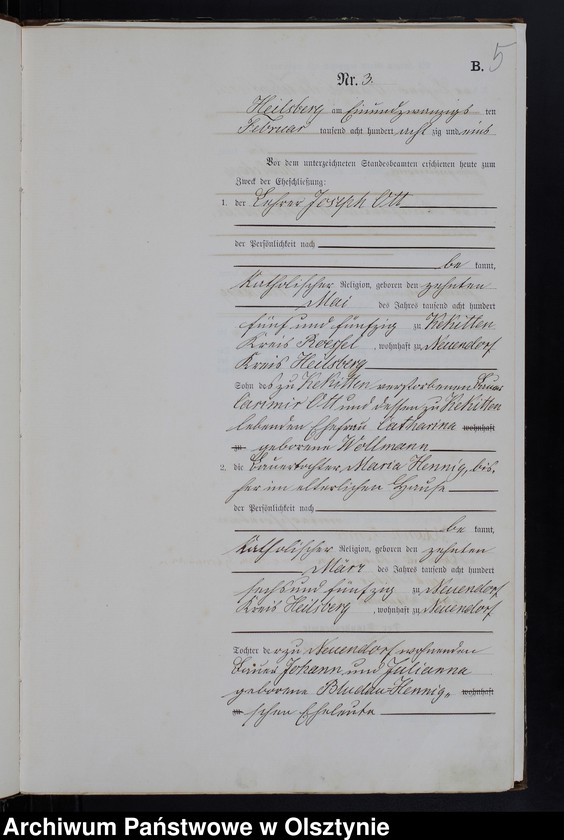 B. 5
Nr. 3.
Heilsberg am Einundzwanzigs ten
Februar tausend acht hundert acht zig und eins
Vor dem unterzeichneten Standesbeamten erschienen heute zum
Zweck der Eheschließung:
1. der Lehrer Joseph Ott
der Persönlichkeit nach
be kannt,
katholischer Religion, geboren den zehnten
Mai des Jahres tausend acht hundert
fünf und fünfzig zu Kekitten
Kreis Roessel, wohnhaft zu Neuendorf
Kreis Heilsberg
Sohn des zu Kekitten verstorbenen Bauer
Casimir Ott und dessen zu Kekitten
lebenden Ehefrau Catharina wohnhaft
zu geborene Wollmann
2. die Bauertochter Maria Hennig, bis-
her im elterlichen Hause
der Persönlichkeit nach
be kannt,
katholischer Religion, geboren den zehnten
März des Jahres tausend acht hundert
sechs und fünfzig zu Neuendorf
Kreis Heilsberg, wohnhaft zu Neuendorf
Tochter der zu Neuendorf wohnenden
Bauer Johann und Julianna
geborene Bludau-Hennig" wohnhaft
zu schen Eheleute
Archiwum Państwowe w Olsztynie